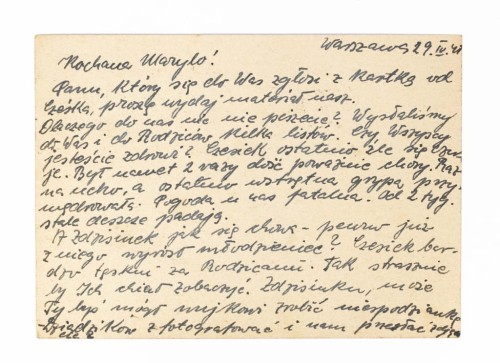 Warszawa, 29.IV.41
Kochana Marylo!
Panu, który się do Was zgłosi z kartką od
Cześka, proszę wydaj materiał nasz.
Dlaczego do nas nic nie piszecie? Wysłaliśmy
do Was i do Rodziców kilka listów. Czy Wszyscy
jesteście zdrowi? Czesiek ostatnio źle się czu-
je. Był nawet 2 razy dość poważnie chory. Raz
na ucho, a ostatnio wstrętna grypa przy-
wędrowała. Pogoda u nas fatalna. Od 2 tyg.
stale deszcze padają.
A Zdzisinek jak się chowa - pewno już
z niego wyrósł młodzieniec? Czesiek bar-
dzo tęskni za Rodzicami. Tak strasznie
by Ich chciał zobaczyć. Zdzisinku, może
Ty byś mógł wujkowi zrobić niespodziankę
Dziadzików sfotografować i nam przesłać